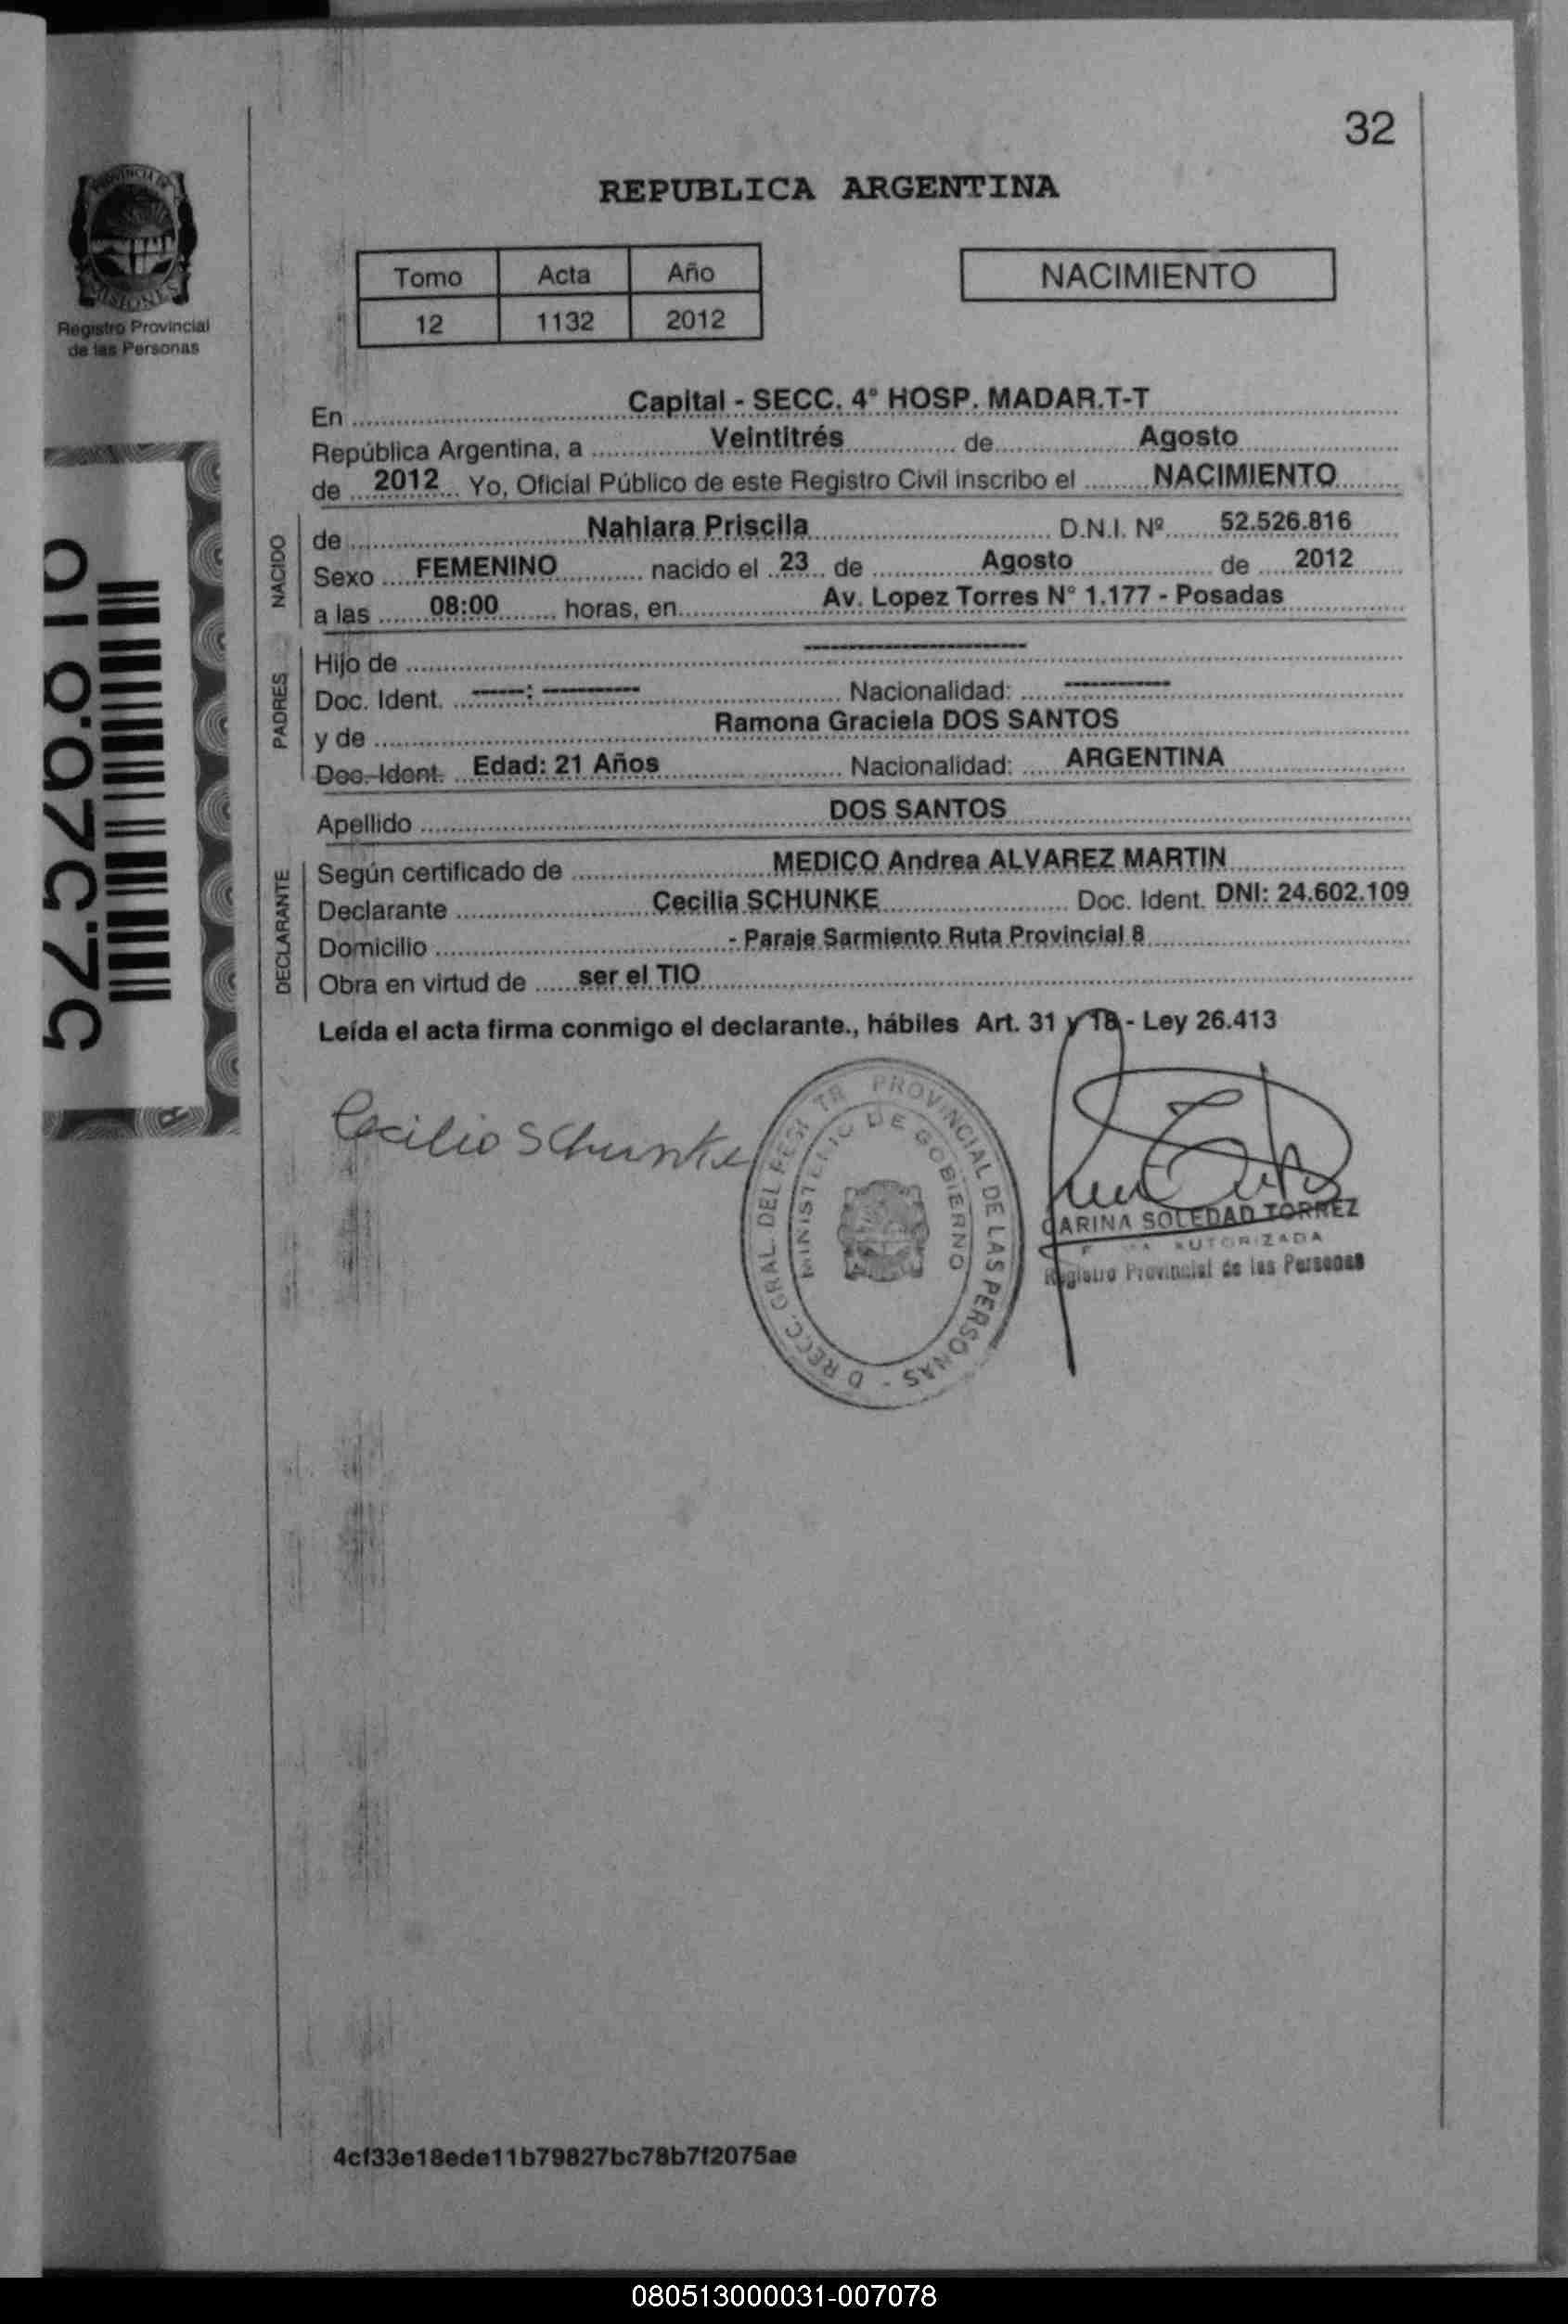 32
REPUBLICA ARGENTINA
PROVINCIA DE
MISIONES
Registro Provincial
de las Personas
Tomo Acta Año
12 1132 2012
NACIMIENTO
En Capital - SECC. 4° HOSP. MADAR.T-T
República Argentina, a Veintitrés de Agosto
de 2012 Yo, Oficial Público de este Registro Civil inscribo el NACIMIENTO
NACIDO
de Nahiara Priscila D.N.I. Nº 52.526.816
Sexo FEMENINO nacido el 23 de Agosto de 2012
a las 08:00 horas, en Av. Lopez Torres N° 1.177 - Posadas
PADRES
Hijo de ----------
Doc. Ident. -----: --------- Nacionalidad: ----------
y de Ramona Graciela DOS SANTOS
Doc. Ident. Edad: 21 Años Nacionalidad: ARGENTINA
Apellido DOS SANTOS
DECLARANTE
Según certificado de MEDICO Andrea ALVAREZ MARTIN
Declarante Cecilia SCHUNKE Doc. Ident. DNI: 24.602.109
Domicilio - Paraje Sarmiento Ruta Provincial 8
Obra en virtud de ser el TIO
Leída el acta firma conmigo el declarante., hábiles Art. 31 y 18 - Ley 26.413
Cecilio Schunke
PROVINCIAL DE LAS PERSONAS -
GRAL. DEL
MINISTERIO DE GOBIERNO
CARINA SOLEDAD TORREZ
AUTORIZADA
Registro Provincial de las Personas
4cf33e18ede11b79827bc78b7f2075ae
080513000031-007078